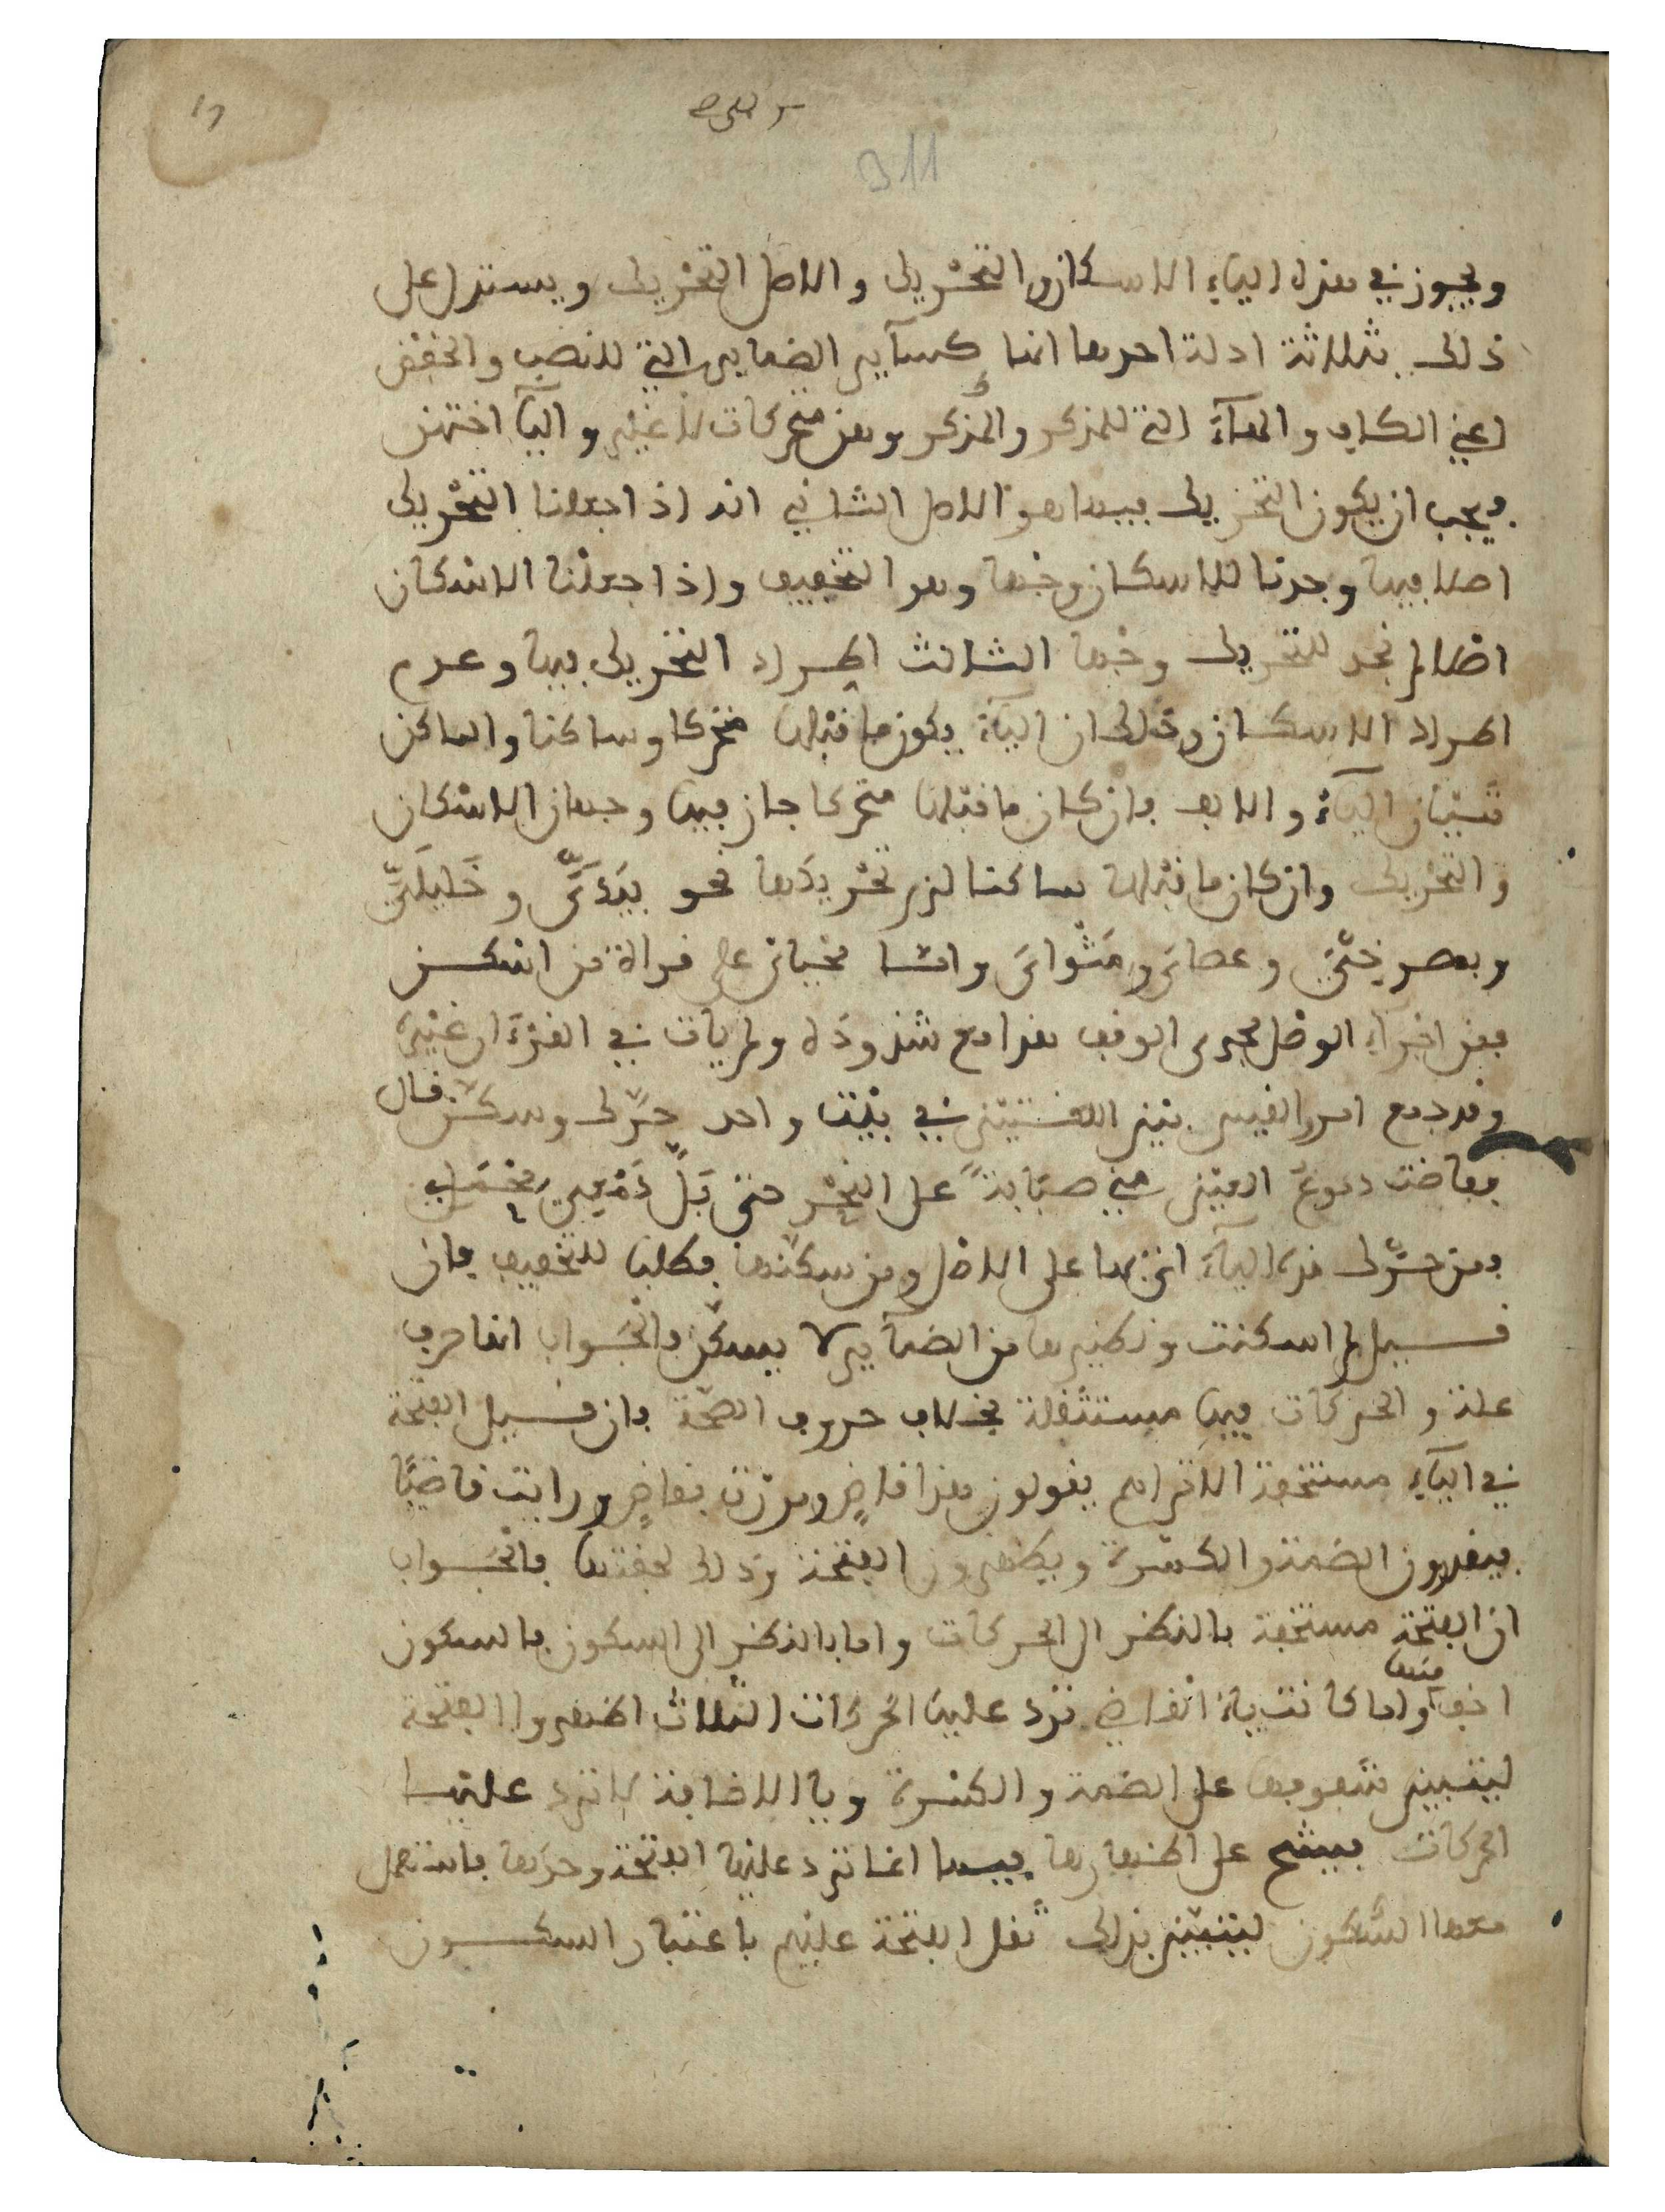 311
ويجوز في هذه الياء الاسكان والتحريك والاصل التحريك ويستدل على
ذلك بثلاثة ادلة احدها انها كسآير الضماير التي للنصب والخفض
اعني الكاف والهآء التي للمذكر والمذكر وهن متحركات لا غير واليآ اختهن
فيجب ان يكون التحريك فيها هو الاصل الثاني انه اذا جعلنا التحريك
اصلا فيها وجدنا للاسكان وجها وهو التخفيف واذا جعلنا الاسكان
اصلا لم نجد للتحريك وجها الثالث اطراد التحريك فيها وعدم
اطراد الاسكان وذلك ان اليآء يكون ما قبلها متحركا وساكنا والساكن
شيئان اليآء والالف فان كان ما قبلها متحركا جاز فيها وجهان الاسكان
والتحريك وان كان ما قبلها ساكنا لزم تحريكها نحو بيَدَيَّ وخَليلَيَّ
وبمصرخيَّ وعصايَ ومَثْوايَ واما محيايْ على قراءة من اسكن
فمن اجراء الوصل مجرى الوقف هذا مع شذوذه ولم يات في القرءان غيره
وقد جمع امرؤ القيس بين اللغتين في بيت واحد حرّك وسكّن فقال
ففاضت دموعُ العين مني صبابةً على النحر حتى بَلَّ دَمْعِيَ مِحْمَلِي
فمن حرّك هذه اليآء اتى بها على الاصل ومن سكّنها فطلبا للتخفيف فان
قيل لم اسكنت ونظيرها من الضمآير لا يسكّن فالجواب انها حرف
علة والحركات فيها مستثقلة بخلاف حروف الصحة فان قيل الفتحة
في اليآء مستخفة الا تراهم يقولون هذا قاضٍ ومررت بقاضٍ ورايت قاضيًا
فيقدرون الضمة والكسرة ويظهرون الفتحة وذلك لخفتها فالجواب
ان الفتحة مستخفة بالنظر الى الحركات واما بالنظر الى السكون فالسكون
اخف منها ولما كانت ياء القاضي ترد عليها الحركات الثلاث اظهروا الفتحة
ليتبين شفوفها على الضمة والكسرة ويا الاضافة لا ترد عليها
الحركات فيشح على اظهارها فيها انما ترد عليها الفتحة وحدها فاستعمل
معها السكون ليتبين بذلك ثقل الفتحة عليهم باعتبار السكون